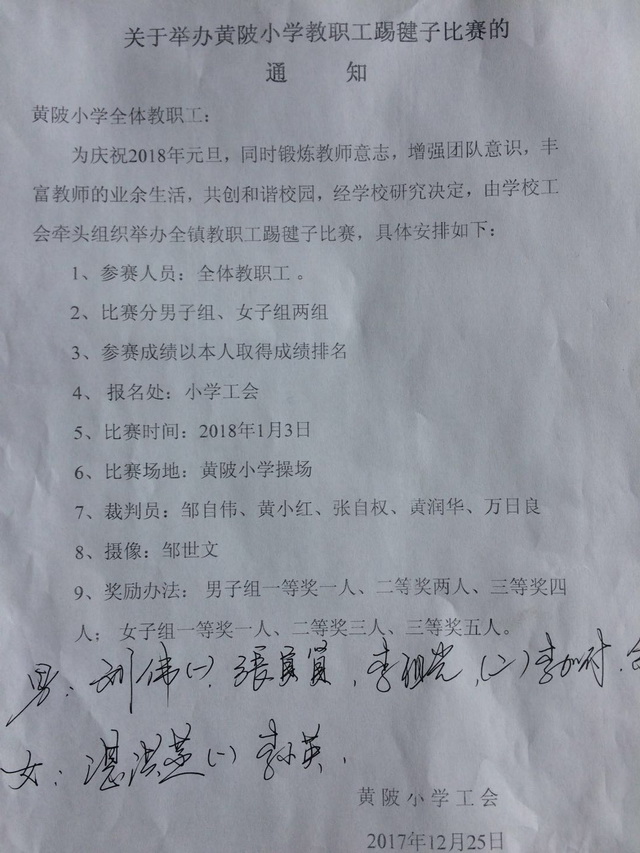 关于举办黄陂小学教职工踢毽子比赛的
通 知
黄陂小学全体教职工：
为庆祝2018年元旦，同时锻炼教师意志，增强团队意识，丰
富教师的业余生活，共创和谐校园，经学校研究决定，由学校工
会牵头组织举办全镇教职工踢毽子比赛，具体安排如下：
1、参赛人员：全体教职工 。
2、比赛分男子组、女子组两组
3、参赛成绩以本人取得成绩排名
4、 报名处：小学工会
5、比赛时间：2018年1月3日
6、比赛场地：黄陂小学操场
7、裁判员：邹自伟、黄小红、张自权、黄润华、万日良
8、摄像：邹世文
9、奖励办法： 男子组一等奖一人、二等奖两人、三等奖四
人； 女子组一等奖一人、二等奖三人、三等奖五人。
男：刘伟(一)、張 、李祖 、(二)李
女：湛洪 (一) 李小英、
黄陂小学工会
2017年12月25日